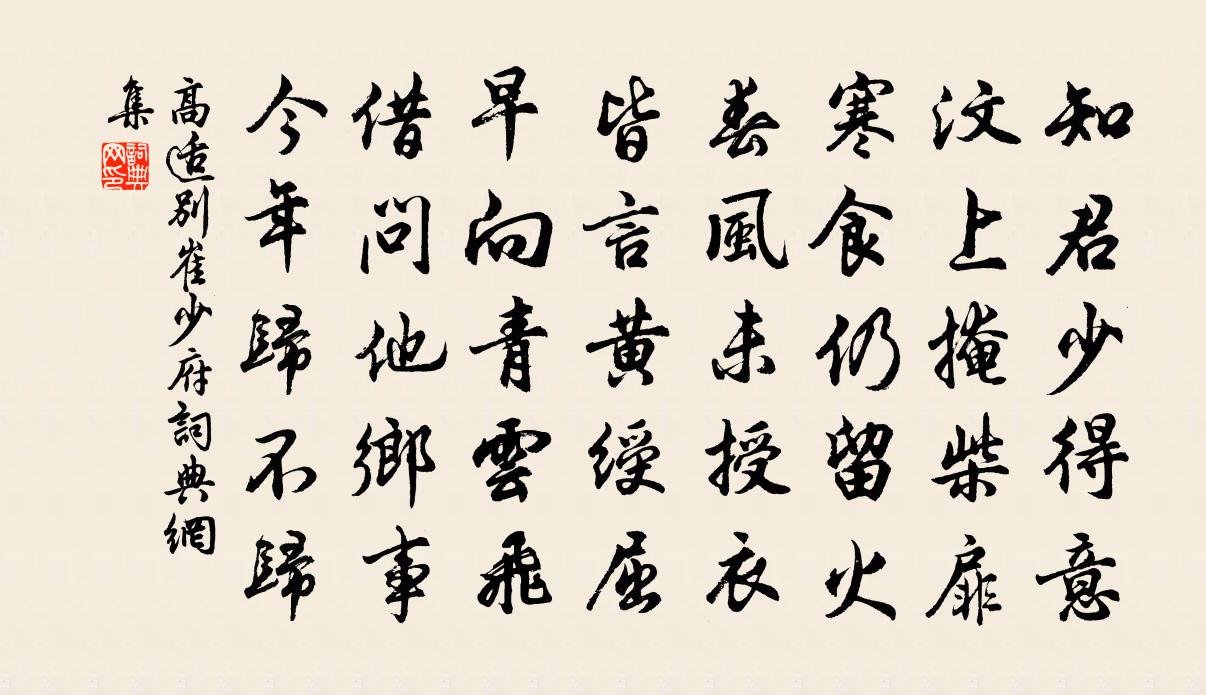 知君少得意
汶上掩柴扉
寒食仍留火
春風未授衣
皆言黄綬屈
早向青雲飛
借問他鄉事
今年歸不歸
高适別崔少府詞典網
集
詞典
网印